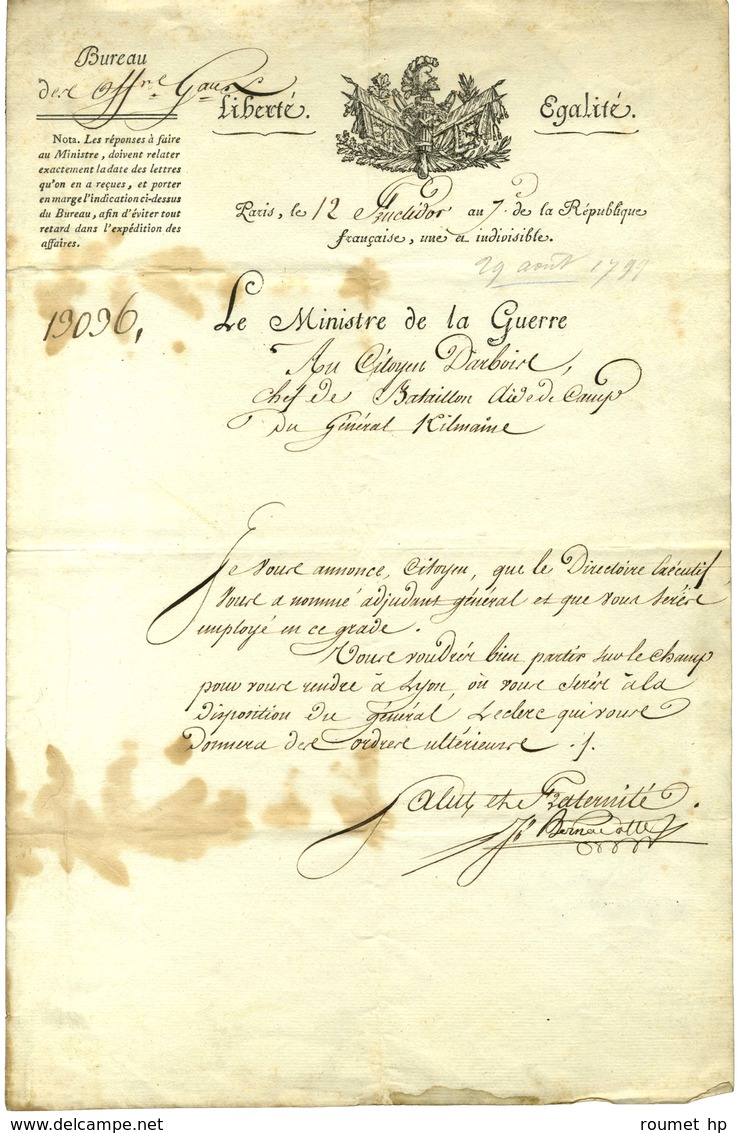 Bureau
des Offrs. Gaux
Liberté.
Egalité.
Nota. Les réponses à faire
au Ministre, doivent relater
exactement la date des lettres
qu'on en a reçues, et porter
en marge l'indication ci-dessus
du Bureau, afin d'éviter tout
retard dans l'expédition des
affaires.
Paris, le 12 Fructidor an 7e. de la République
française, une et indivisible.
29 août 1799
19096,
Le Ministre de la Guerre
Au Citoyen Darbois,
chef de Bataillon aide de Camp
du Général Kilmaine
Je vous annonce, Citoyen, que le Directoire Exécutif
vous a nommé adjudant général et que vous serés
employé en ce grade.
Vous voudrés bien partir sur le champ
pour vous rendre à Lyon, où vous serés à la
disposition du général Leclerc qui vous
donnera des ordres ultérieurs ./.
Salut et Fraternité.
Jb Bernadotte
roumet hp